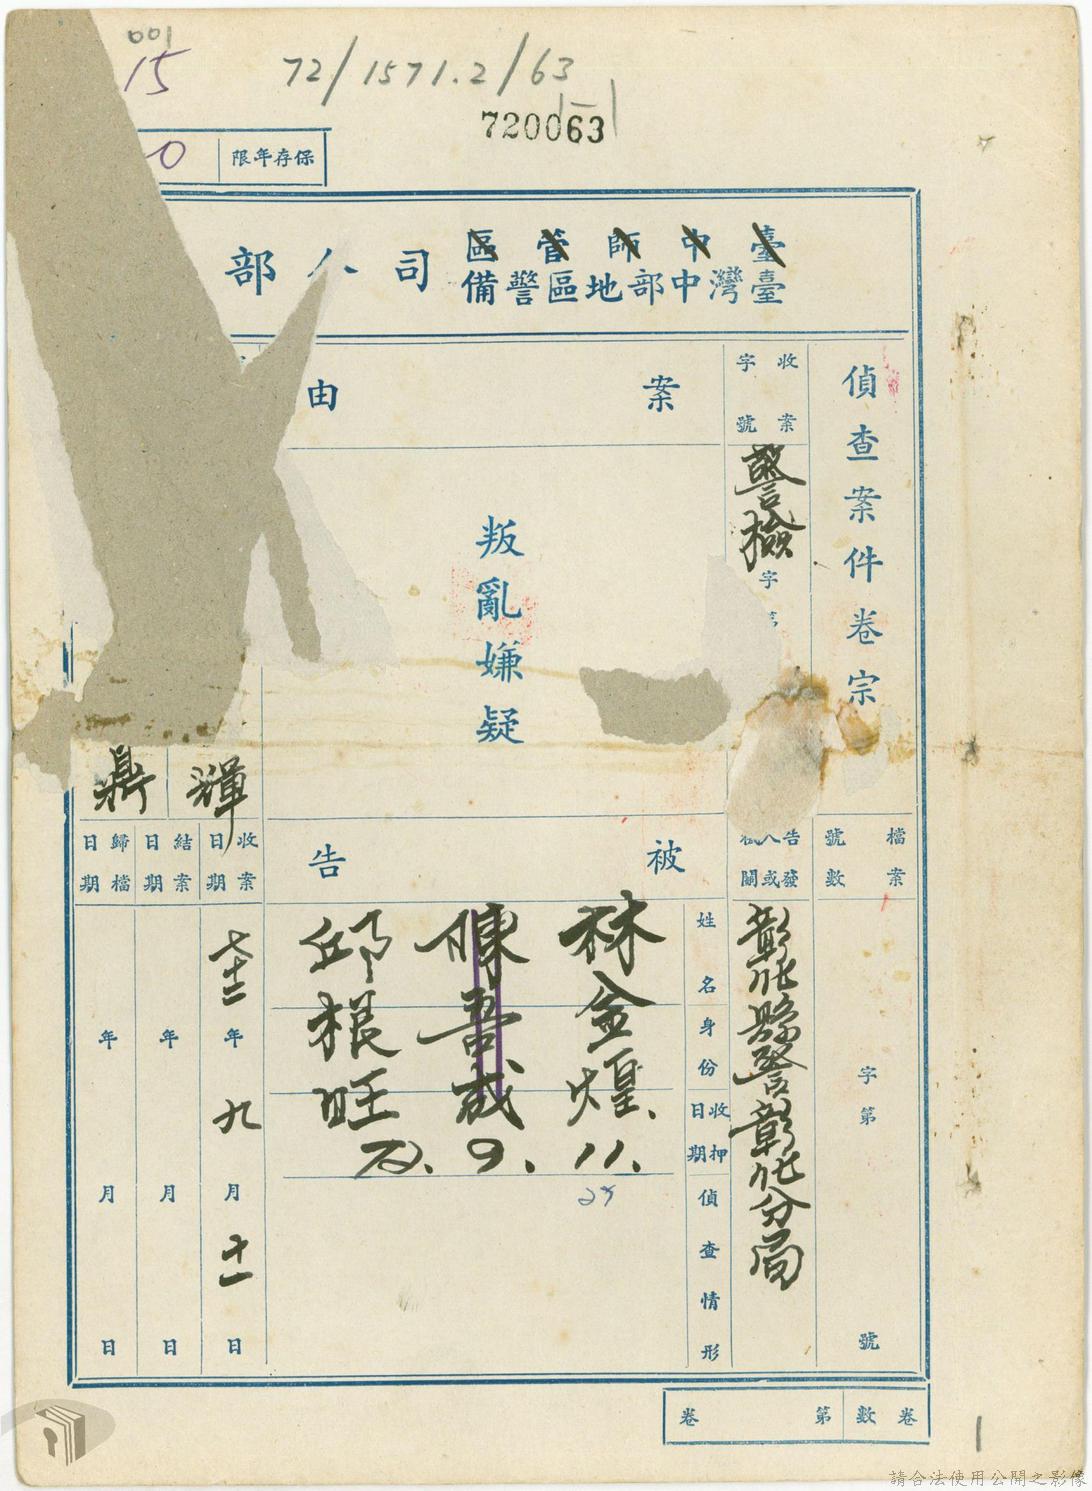 001
15
72/1571.2/63
720063
保存年限
0
臺中師管區
臺灣中部地區警備
司令部
偵查案件卷宗
收案字號
警檢
字第
案由
叛亂嫌疑
輝
鼎
檔案號數
字第
號
告發人或機關
彰化縣警彰化分局
被告
姓名
身份
收押日期
偵查情形
林金煌
陳吾成
邱根旺
72.9.11.
24
收案日期
七十二年九月十一日
結案日期
年月日
歸檔日期
年月日
卷數
第
卷
請合法使用公開之影像